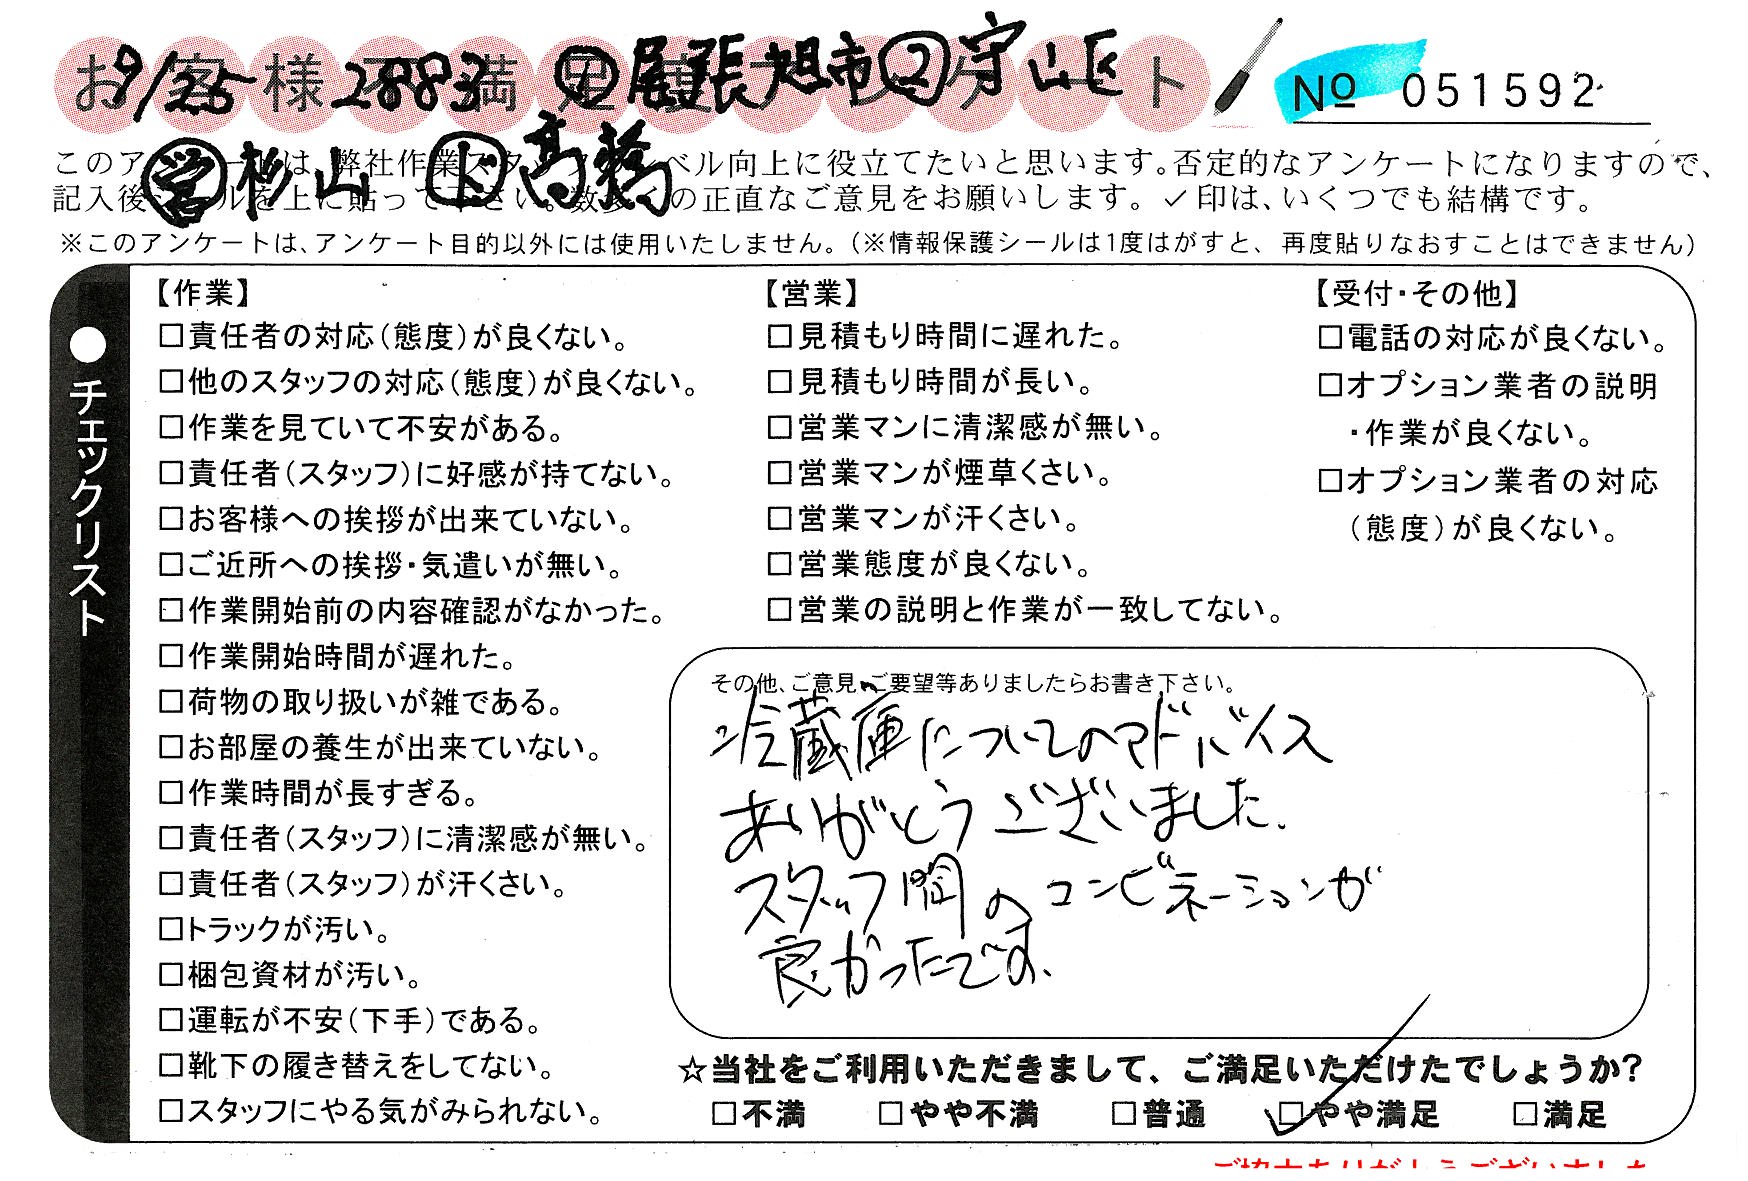 お客様不満足度アンケート
9/25 2883 ㋐尾張旭市②守山区
№ 051592
㊂杉山 ㋣高橋
このアンケートは、弊社作業スタッフのレベル向上に役立てたいと思います。否定的なアンケートになりますので、
記入後シールを上に貼って下さい。数多くの正直なご意見をお願いします。✓印は、いくつでも結構です。
※このアンケートは、アンケート目的以外には使用いたしません。（※情報保護シールは1度はがすと、再度貼りなおすことはできません）
●チェックリスト
【作業】
□責任者の対応（態度）が良くない。
□他のスタッフの対応（態度）が良くない。
□作業を見ていて不安がある。
□責任者（スタッフ）に好感が持てない。
□お客様への挨拶が出来ていない。
□ご近所への挨拶・気遣いが無い。
□作業開始前の内容確認がなかった。
□作業開始時間が遅れた。
□荷物の取り扱いが雑である。
□お部屋の養生が出来ていない。
□作業時間が長すぎる。
□責任者（スタッフ）に清潔感が無い。
□責任者（スタッフ）が汗くさい。
□トラックが汚い。
□梱包資材が汚い。
□運転が不安（下手）である。
□靴下の履き替えをしてない。
□スタッフにやる気がみられない。
【営業】
□見積もり時間に遅れた。
□見積もり時間が長い。
□営業マンに清潔感が無い。
□営業マンが煙草くさい。
□営業マンが汗くさい。
□営業態度が良くない。
□営業の説明と作業が一致してない。
【受付・その他】
□電話の対応が良くない。
□オプション業者の説明
・作業が良くない。
□オプション業者の対応
（態度）が良くない。
その他、ご意見、ご要望等ありましたらお書き下さい。
冷蔵庫についてのアドバイス
ありがとうございました。
スタッフ間のコンビネーションが
良かったです。
☆当社をご利用いただきまして、ご満足いただけたでしょうか？
□不満 □やや不満 □普通 ☑やや満足 □満足
ご協力ありがとうございました